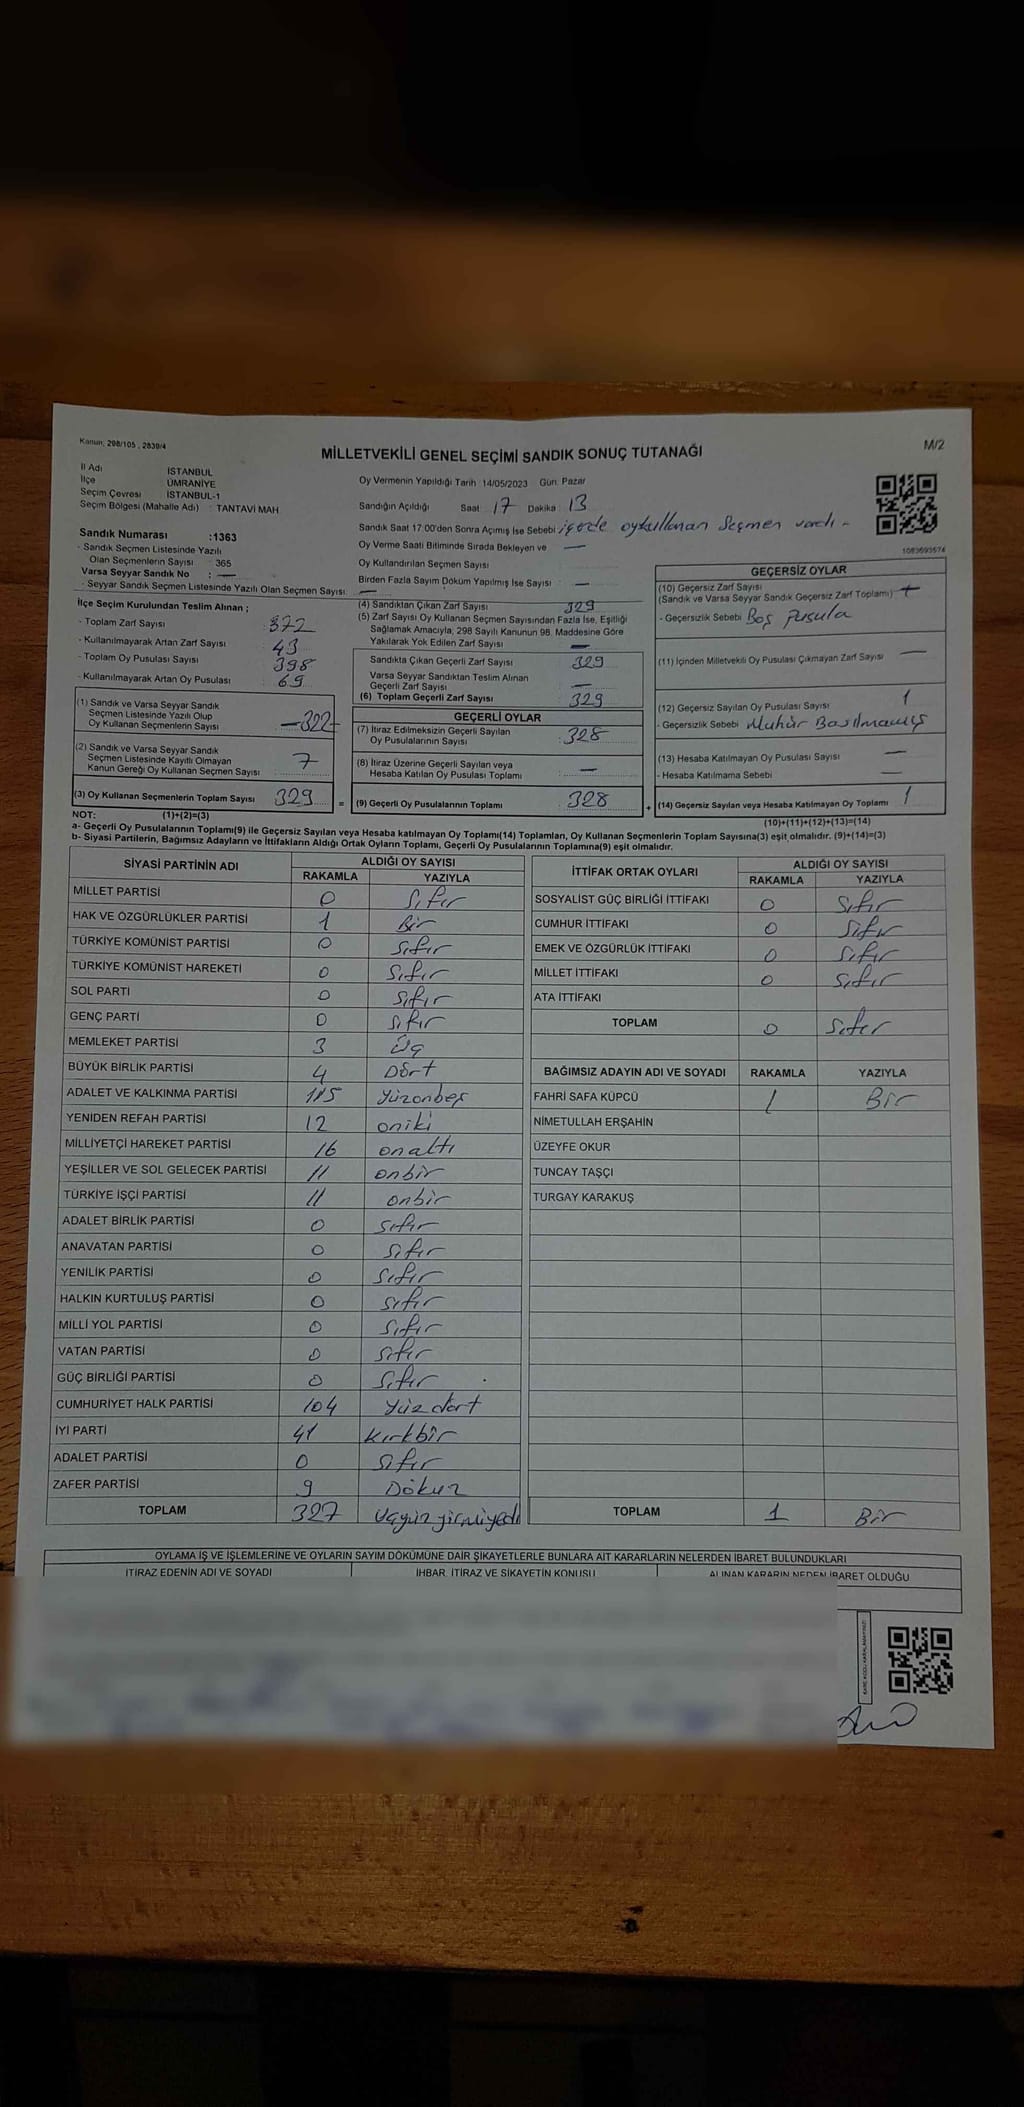 Kanun, 298/105 , 2839/4
M/2
MİLLETVEKİLİ GENEL SEÇİMİ SANDIK SONUÇ TUTANAĞI
İl Adı İSTANBUL
İlçe ÜMRANİYE
Seçim Çevresi İSTANBUL-1
Seçim Bölgesi (Mahalle Adı) : TANTAVİ MAH.
Sandık Numarası :1363
- Sandık Seçmen Listesinde Yazılı
Olan Seçmenlerin Sayısı : 365
Varsa Seyyar Sandık No : —
- Seyyar Sandık Seçmen Listesinde Yazılı Olan Seçmen Sayısı: —
İlçe Seçim Kurulundan Teslim Alınan ;
- Toplam Zarf Sayısı : 372
- Kullanılmayarak Artan Zarf Sayısı : 43
- Toplam Oy Pusulası Sayısı : 398
- Kullanılmayarak Artan Oy Pusulası : 69
(1) Sandık ve Varsa Seyyar Sandık
Seçmen Listesinde Yazılı Olup
Oy Kullanan Seçmenlerin Sayısı —322—
(2) Sandık ve Varsa Seyyar Sandık
Seçmen Listesinde Kayıtlı Olmayan
Kanun Gereği Oy Kullanan Seçmen Sayısı : 7
(3) Oy Kullanan Seçmenlerin Toplam Sayısı 329
Oy Vermenin Yapıldığı Tarih :14/05/2023 Gün: Pazar
Sandığın Açıldığı Saat : 17 Dakika : 13
Sandık Saat 17:00'den Sonra Açılmış İse Sebebi : içerde oykullanan seçmen vardı -
Oy Verme Saati Bitiminde Sırada Bekleyen ve —
Oy Kullandırılan Seçmen Sayısı
Birden Fazla Sayım Döküm Yapılmış İse Sayısı : —
(4) Sandıktan Çıkan Zarf Sayısı : 329
(5) Zarf Sayısı Oy Kullanan Seçmen Sayısından Fazla İse, Eşitliği
Sağlamak Amacıyla, 298 Sayılı Kanunun 98. Maddesine Göre
Yakılarak Yok Edilen Zarf Sayısı : —
Sandıkta Çıkan Geçerli Zarf Sayısı : 329
Varsa Seyyar Sandıktan Teslim Alınan
Geçerli Zarf Sayısı : —
(6) Toplam Geçerli Zarf Sayısı : 329
GEÇERLİ OYLAR
(7) İtiraz Edilmeksizin Geçerli Sayılan
Oy Pusulalarının Sayısı : 328
(8) İtiraz Üzerine Geçerli Sayılan veya
Hesaba Katılan Oy Pusulası Toplamı : —
= (9) Geçerli Oy Pusulalarının Toplamı : 328
1083693574
GEÇERSİZ OYLAR
(10) Geçersiz Zarf Sayısı
(Sandık ve Varsa Seyyar Sandık Geçersiz Zarf Toplamı)
- Geçersizlik Sebebi Boş Pusula
(11) İçinden Milletvekili Oy Pusulası Çıkmayan Zarf Sayısı —
(12) Geçersiz Sayılan Oy Pusulası Sayısı 1
- Geçersizlik Sebebi Mühür Basılmamış
(13) Hesaba Katılmayan Oy Pusulası Sayısı —
- Hesaba Katılmama Sebebi —
+ (14) Geçersiz Sayılan veya Hesaba Katılmayan Oy Toplamı : 1
NOT: (1)+(2)=(3) (10)+(11)+(12)+(13)=(14)
a- Geçerli Oy Pusulalarının Toplamı(9) ile Geçersiz Sayılan veya Hesaba katılmayan Oy Toplamı(14) Toplamları, Oy Kullanan Seçmenlerin Toplam Sayısına(3) eşit olmalıdır. (9)+(14)=(3)
b- Siyasi Partilerin, Bağımsız Adayların ve İttifakların Aldığı Ortak Oyların Toplamı, Geçerli Oy Pusulalarının Toplamına(9) eşit olmalıdır.
SİYASİ PARTİNİN ADI ALDIĞI OY SAYISI
RAKAMLA YAZIYLA
MİLLET PARTİSİ 0 Sıfır
HAK VE ÖZGÜRLÜKLER PARTİSİ 1 Bir
TÜRKİYE KOMÜNİST PARTİSİ 0 Sıfır
TÜRKİYE KOMÜNİST HAREKETİ 0 Sıfır
SOL PARTİ 0 Sıfır
GENÇ PARTİ 0 Sıfır
MEMLEKET PARTİSİ 3 Üç
BÜYÜK BİRLİK PARTİSİ 4 Dört
ADALET VE KALKINMA PARTİSİ 115 Yüzonbeş
YENİDEN REFAH PARTİSİ 12 oniki
MİLLİYETÇİ HAREKET PARTİSİ 16 onaltı
YEŞİLLER VE SOL GELECEK PARTİSİ 11 onbir
TÜRKİYE İŞÇİ PARTİSİ 11 onbir
ADALET BİRLİK PARTİSİ 0 Sıfır
ANAVATAN PARTİSİ 0 Sıfır
YENİLİK PARTİSİ 0 Sıfır
HALKIN KURTULUŞ PARTİSİ 0 Sıfır
MİLLİ YOL PARTİSİ 0 Sıfır
VATAN PARTİSİ 0 Sıfır
GÜÇ BİRLİĞİ PARTİSİ 0 Sıfır
CUMHURİYET HALK PARTİSİ 104 Yüzdört
İYİ PARTİ 41 Kırkbir
ADALET PARTİSİ 0 Sıfır
ZAFER PARTİSİ 9 Dokuz
TOPLAM 327 Üçyüzyirmiyedi
İTTİFAK ORTAK OYLARI ALDIĞI OY SAYISI
RAKAMLA YAZIYLA
SOSYALİST GÜÇ BİRLİĞİ İTTİFAKI 0 Sıfır
CUMHUR İTTİFAKI 0 Sıfır
EMEK VE ÖZGÜRLÜK İTTİFAKI 0 Sıfır
MİLLET İTTİFAKI 0 Sıfır
ATA İTTİFAKI
TOPLAM 0 Sıfır
BAĞIMSIZ ADAYIN ADI VE SOYADI RAKAMLA YAZIYLA
FAHRİ SAFA KÜPCÜ 1 Bir
NİMETULLAH ERŞAHİN
ÜZEYFE OKUR
TUNCAY TAŞÇI
TURGAY KARAKUŞ
TOPLAM 1 Bir
OYLAMA İŞ VE İŞLEMLERİNE VE OYLARIN SAYIM DÖKÜMÜNE DAİR ŞİKAYETLERLE BUNLARA AİT KARARLARIN NELERDEN İBARET BULUNDUKLARI
İTİRAZ EDENİN ADI VE SOYADI İHBAR, İTİRAZ VE ŞİKAYETİN KONUSU ALINAN KARARIN NEDEN İBARET OLDUĞU